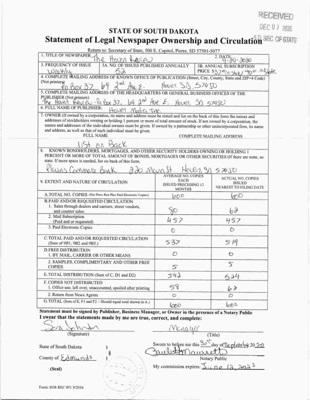 RECEIVED
DEC 07 2020
S.D. SEC. OF STATE
STATE OF SOUTH DAKOTA
Statement of Legal Newspaper Ownership and Circulation
Return to: Secretary of State, 500 E. Capitol, Pierre, SD 57501-5077
1. TITLE OF NEWSPAPER The Hoven Review
2. DATE
3. FREQUENCY OF ISSUE weekly
3A. NO. OF ISSUES PUBLISHED ANNUALLY 52
3B. ANNUAL SUBSCRIPTION PRICE
4. COMPLETE MAILING ADDRESS OF KNOWN OFFICE OF PUBLICATION (Street, City, County, State and ZIP+4 Code)
(Not printers)
5. COMPLETE MAILING ADDRESS OF THE HEADQUARTERS OF GENERAL BUSINESS OFFICES OF THE
PUBLISHER (Not printers)
6. FULL NAME OF PUBLISHER:
7. OWNER (If owned by a corporation, its name and address must be stated and list on the back of this form the names and
addresses of stockholders owning or holding 1 percent or more of total amount of stock. If not owned by a corporation, the
names and addresses of the individual owners must be given. If owned by a partnership or other unincorporated firm, its name
and address, as well as that of each individual must be given.
FULL NAME COMPLETE MAILING ADDRESS
List on Back
8. KNOWN BONDHOLDERS, MORTGAGES, AND OTHER SECURITY HOLDERS OWNING OR HOLDING 1
PERCENT OR MORE OF TOTAL AMOUNT OF BONDS, MORTGAGES OR OTHER SECURITIES (If there are none, so
state. If more space is needed, for on back of this form.
Plains Commerce Bank
9. EXTENT AND NATURE OF CIRCULATION
AVERAGE NO. COPIES
EACH
ISSUED PRECEDING 12
MONTHS
ACTUAL NO. COPIES
ISSUED
NEAREST TO FILING DATE
A. TOTAL NO. COPIES 600 600
B. PAID AND/OR REQUESTED CIRCULATION
1. Sales through dealers and carriers, street vendors,
and counter sales. 80 62
2. Mail Subscription
(Paid and or requested) 457 457
3. Paid Electronic Copies 0 0
C. TOTAL PAID AND/OR REQUESTED CIRCULATION
(Sum of 9B1, 9B2 and 9B3.) 537 519
D. FREE DISTRIBUTION
1. BY MAIL, CARRIER OR OTHER MEANS 0 0
2. SAMPLES, COMPLIMENTARY AND OTHER FREE
COPIES 5 5
E. TOTAL DISTRIBUTION (Sum of C, D1 and D2) 542 524
F. COPIES NOT DISTRIBUTED
1. Office use, left over, unaccounted, spoiled after printing 58
2. Return from News Agents 0 0
G. TOTAL (Sum of E, F1 and F2 - Should equal total shown in A.) 600 600
Statement must be signed by Publisher, Business Manager, or Owner in the presence of a Notary Public
I swear that the statements made by me are true, correct, and complete:
Manager
(Signature) (Title)
State of South Dakota )
Sworn to before me this
County of Edmunds )
Notary Public
(Seal)
My commission expires: